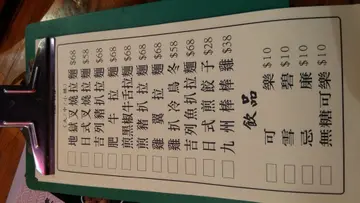 地獄叉燒拉麵 $68
日式叉燒拉麵 $68
吉列豬扒拉麵 $68
肥牛拉麵 $68
煎黑椒牛舌拉麵 $68
煎豬扒拉麵 $68
雞翼拉麵 $68
雞扒冷烏冬 $58
吉列魚扒拉麵 $68
日式煎餃子 $28
九州棒棒雞 $38
飲品
可樂 $10
雪碧 $10
忌廉 $10
無糖可樂 $10